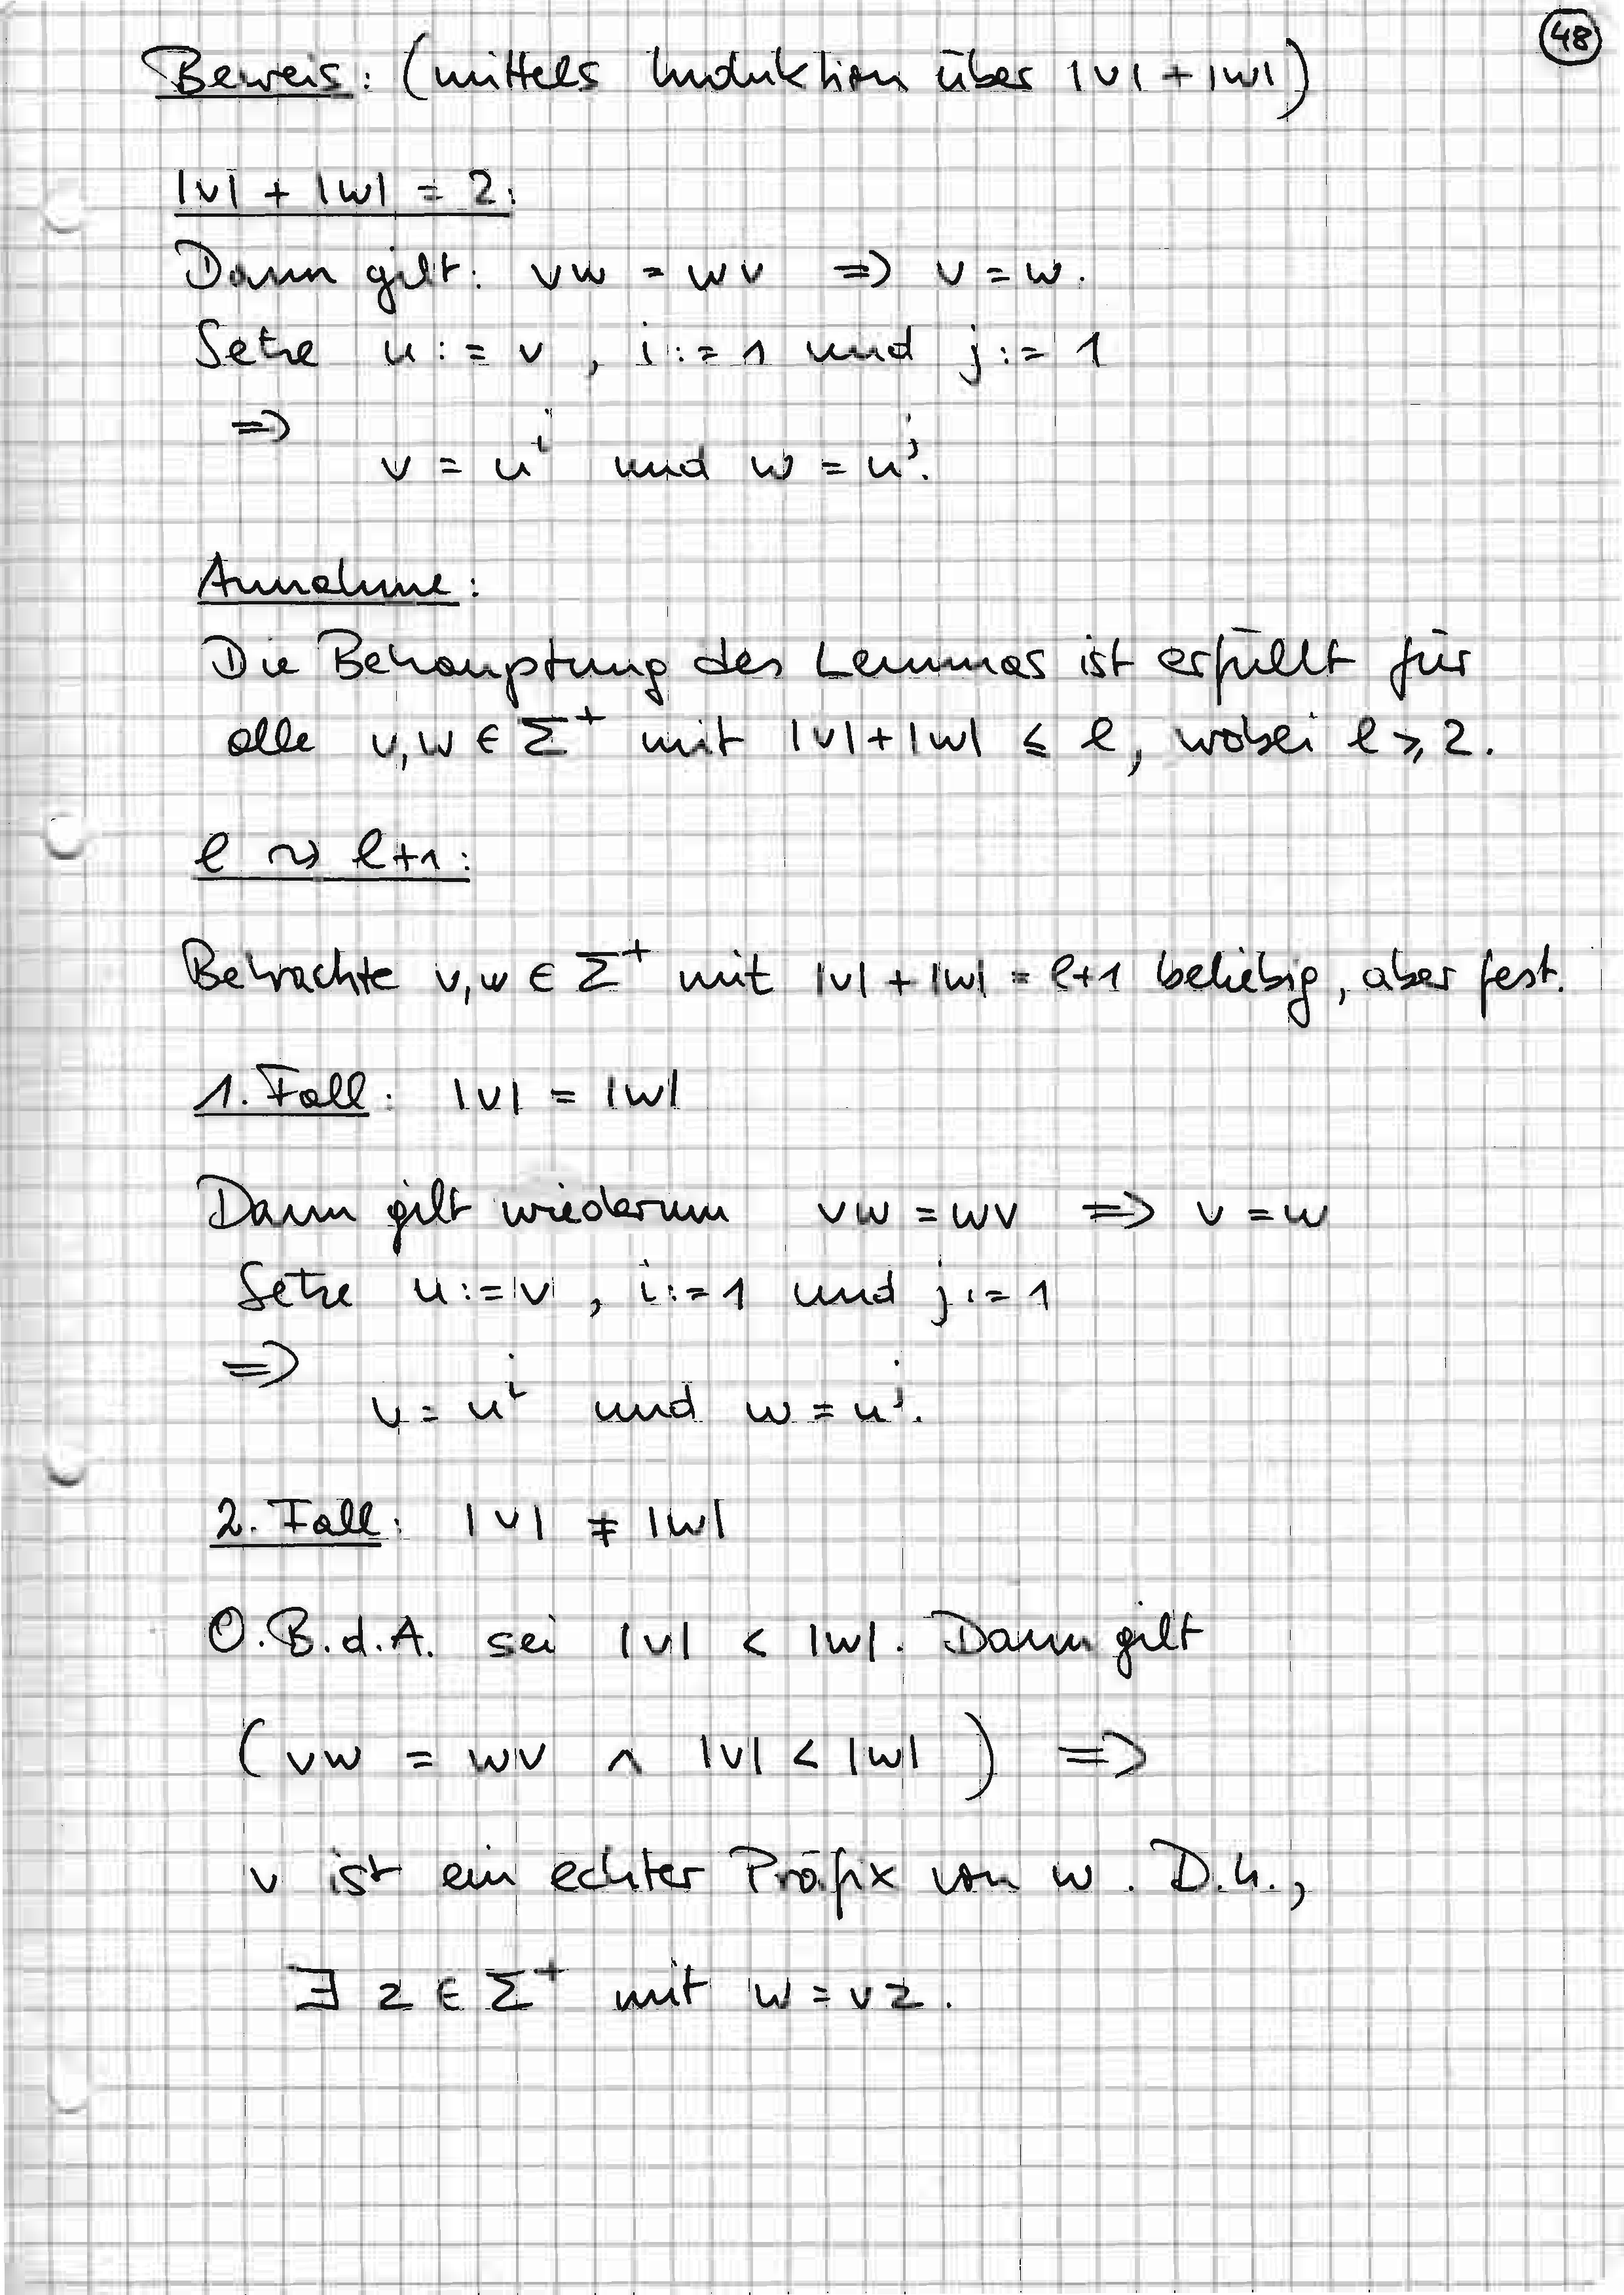 48
Beweis: (mittels Induktion über |v| + |w|)
|v| + |w| = 2:
Dann gilt: vw = wv ⇒ v = w.
Setze u := v, i := 1 und j := 1
⇒
v = uⁱ und w = uʲ.
Annahme:
Die Behauptung des Lemmas ist erfüllt für
alle v,w ∈ Σ⁺ mit |v|+|w| ≤ ℓ, wobei ℓ ≥ 2.
ℓ ⤳ ℓ+1:
Betrachte v,w ∈ Σ⁺ mit |v| + |w| = ℓ+1 beliebig, aber fest.
1. Fall: |v| = |w|
Dann gilt wiederum vw = wv ⇒ v = w
Setze u := v, i := 1 und j := 1
⇒
v = uⁱ und w = uʲ.
2. Fall: |v| ≠ |w|
O.B.d.A. sei |v| < |w|. Dann gilt
(vw = wv ∧ |v| < |w|) ⇒
v ist ein echter Präfix von w. D.h.,
∃ z ∈ Σ⁺ mit w = vz.